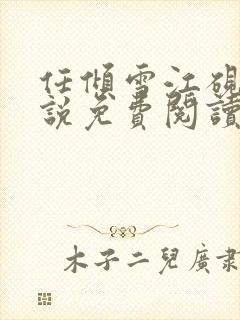 任傾雪江硯
說免費閱讀
木子二兒廣肅